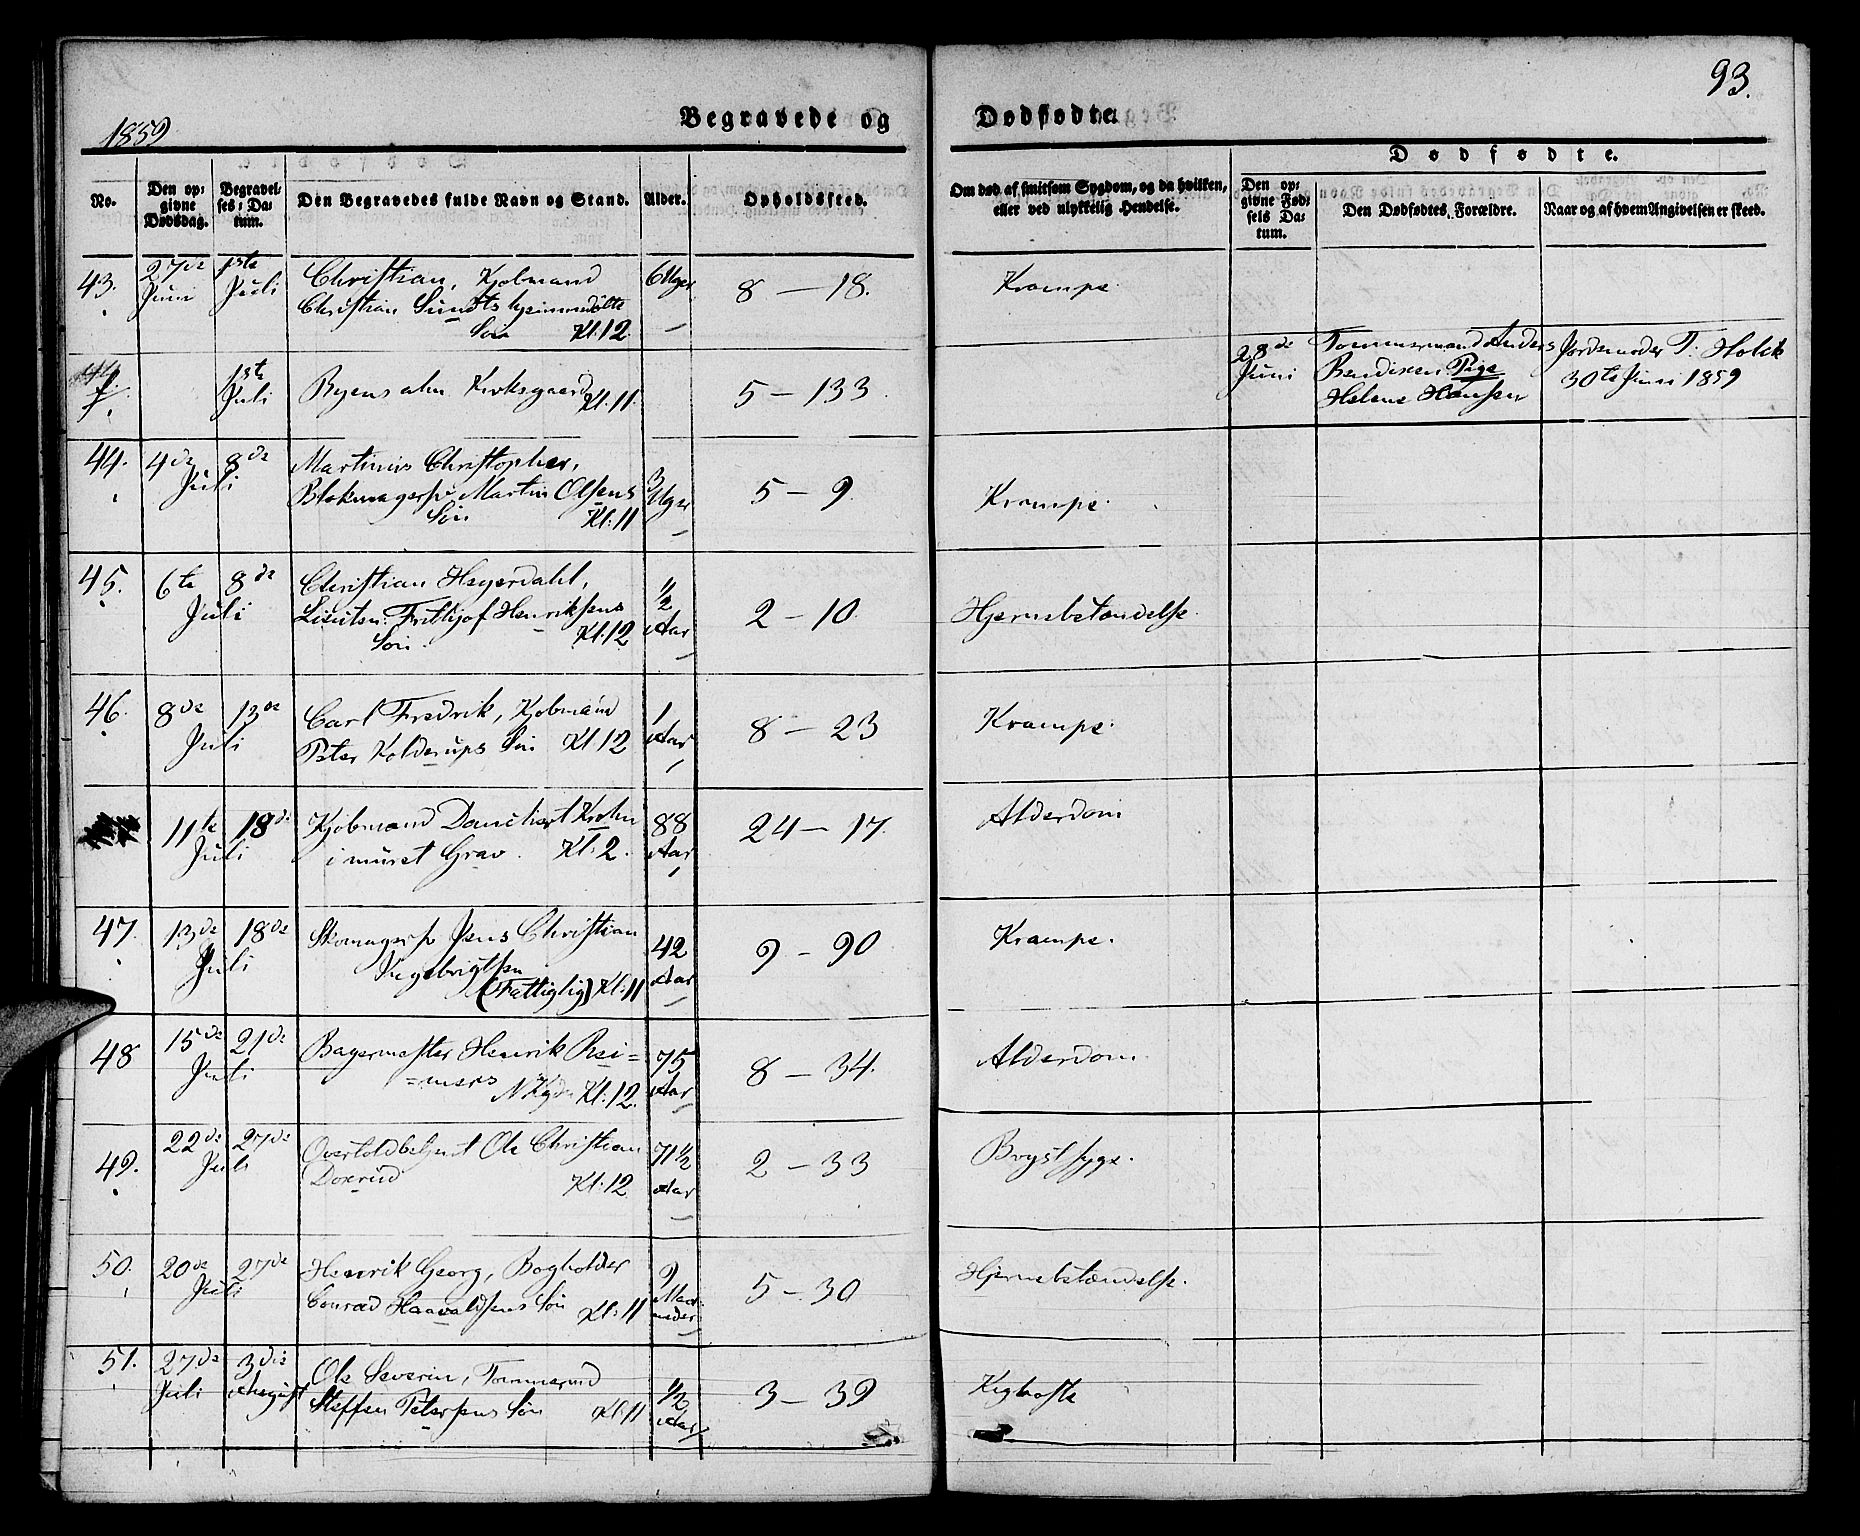 93.
1859
Begravede og Dødfødte.
No.
Den op=
givne
Dødsdag.
Begravel=
ses=Da=
tum.
Den Begravedes fulde Navn og Stand.
Alder.
Opholdssted.
Om død af smitsom Sygdom, og da hvilken,
eller ved ulykkelig Hendelse.
Dødfødte.
Den op=
givne Fød=
sels Da=
tum.
Den Dødfødtes Forældre.
Naar og af hvem Angivelsen er skeed.
43. 27de Juni 1ste Juli
Christian, Kjøbmand
Christian Sundts hjemmedøbte
Søn Kl: 12.
6 Uger
8 — 18.
Krampe.
1ste Juli
Byens alm. Kirkegaard Kl. 11.
5 — 133.
28de Juni
Tømmermand Anders
Bendixen Pige
Helene Hansen
Jordemoder T: Holck
30te Juni 1859
44. 4de 8de Juli
Martinus Christopher,
Blokmagersv. Martin Olsens
Søn Kl: 11
3 Uger
5 — 9.
Krampe.
45. 6te 8de Juli
Christian Heyerdahl,
Lieuten. Frithjof Henriksens
Søn. Kl: 12
1/2 Aar
2 — 10.
Hjernebetændelse.
46. 8de 13de Juli
Carl Fredrik, Kjøbmand
Peter Kolderups Søn Kl. 12
1 Aar
8 — 23
Krampe.
11te 18de Juli
Kjøbmand Danchert Krohn
i muret Grav. Kl: 2.
88 Aar
24 — 17.
Alderdom
47. 13de 18de Juli
Skomagersv Jens Christian
Ingebrigtsen
(Fattiglig) Kl: 11
42 Aar
9 — 90
Krampe.
48 15de 21de Juli
Bagermester Henrik Rei=
=mers Kl: 12.
75 Aar
8 — 34.
Alderdom.
49. 22de 27de Juli
Overtoldbetjent Ole Christian
Doxrud Kl: 12
71 1/2 Aar
2 — 33
Brystsyge.
50. 20de 27de Juli
Henrik Georg, Bogholder
Conrad Haavaldsens Søn Kl: 11
9 Maa=
neder
5 — 30
Hjernebetændelse.
51. 27de Juli 3die August
Ole Severin, Tømmermd
Steffen Petersens Søn Kl: 11
1/2 Aar
3 — 39
Kighoste